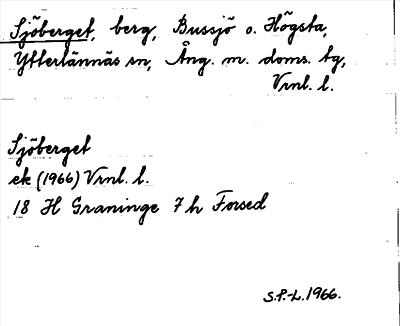 Sjöberget, berg, Bussjö o. Högsta,
Ytterlännäs sn, Ång. m. doms. tg,
Vrnl. l.
Sjöberget
ek (1966) Vrnl. l.
18 H Graninge 7 h Forsed
S.P.-L. 1966.